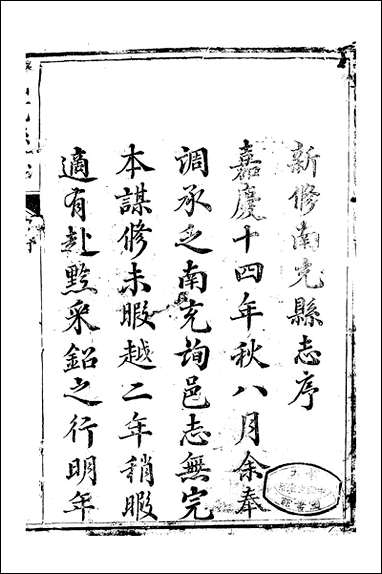 新修南充縣志序
嘉慶十四年秋八月余奉
調承乏南充詢邑志無完
本謀修未暇越二年稍暇
適有赴黔采鉛之行明年